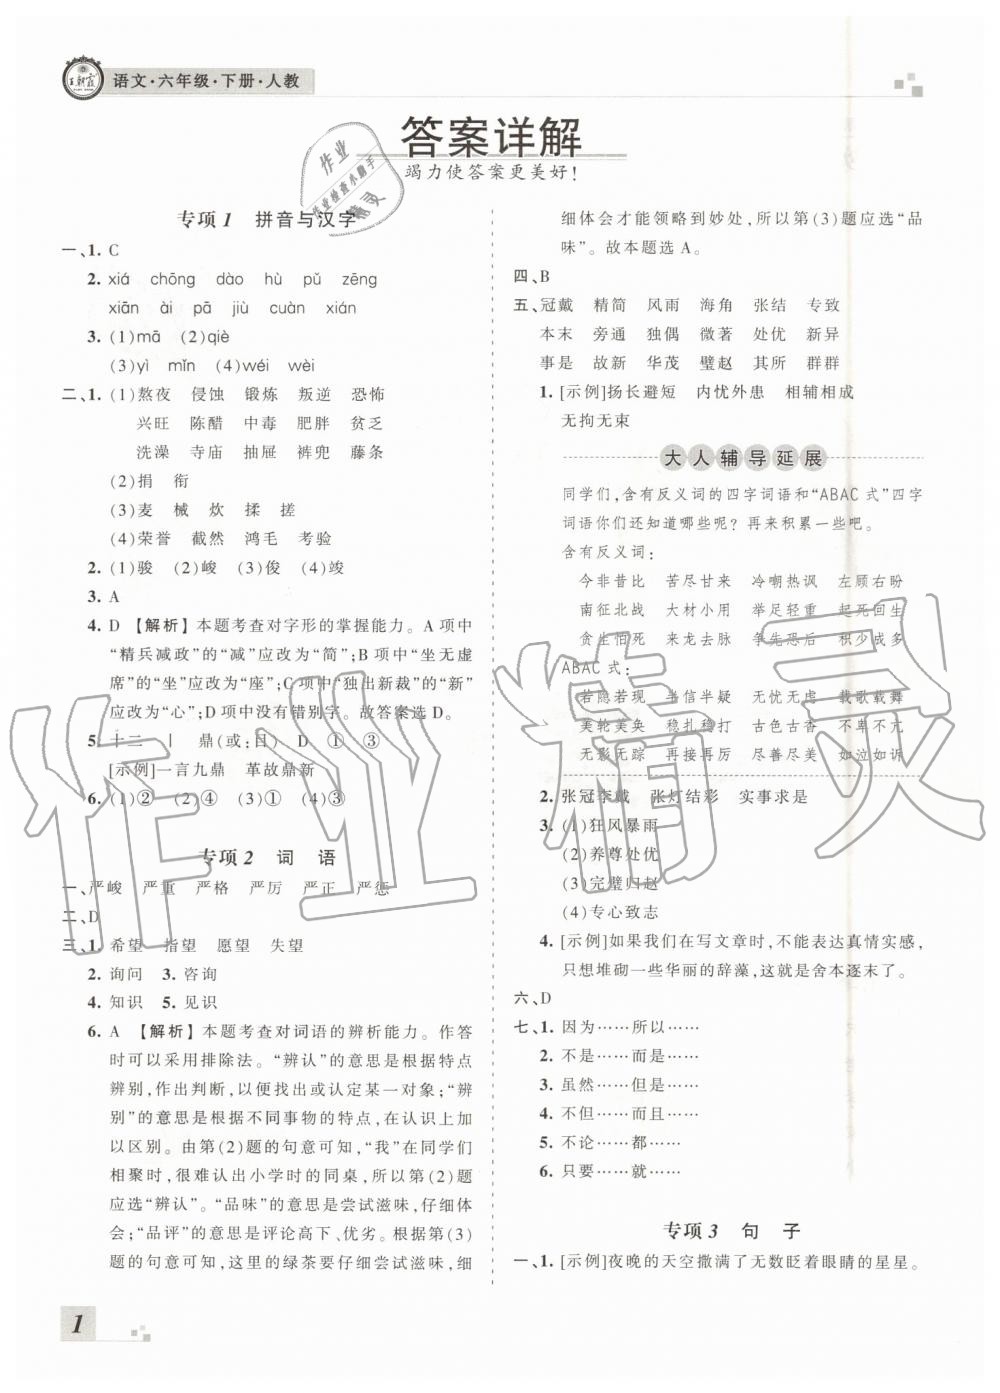 王朝霞
语文·六年级·下册·人教
答案详解
竭力使答案更美好!
专项1 拼音与汉字
一、1. C
2. xiá chōng dào hù pǔ zēng
xiān ài pā jiù cuàn xián
3. (1)mā (2)qiè
(3)yì mǐn (4)wéi wèi
二、1. (1)熬夜 侵蚀 锻炼 叛逆 恐怖
兴旺 陈醋 中毒 肥胖 贫乏
洗澡 寺庙 抽屉 裤兜 藤条
(2)捐 衔
(3)麦 械 炊 揉 搓
(4)荣誉 截然 鸿毛 考验
2. (1)骏 (2)峻 (3)俊 (4)竣
3. A
4. D 【解析】本题考查对字形的掌握能力。A 项中
“精兵减政”的“减”应改为“简”;B 项中“坐无虚
席”的“坐”应改为“座”;C 项中“独出新裁”的“新”
应改为“心”;D 项中没有错别字。故答案选 D。
5. 十二 丨 鼎(或:目) D ① ③
[示例]一言九鼎 革故鼎新
6. (1)② (2)④ (3)① (4)③
专项2 词 语
一、严峻 严重 严格 严厉 严正 严惩
二、D
三、1. 希望 指望 愿望 失望
2. 询问 3. 咨询
4. 知识 5. 见识
6. A 【解析】本题考查对词语的辨析能力。作答
时可以采用排除法。“辨认”的意思是根据特点
辨别,作出判断,以便找出或认定某一对象;“辨
别”的意思是根据不同事物的特点,在认识上加
以区别。由第(2)题的句意可知,“我”在同学们
相聚时,很难认出小学时的同桌,所以第(2)题
应选“辨认”。“品味”的意思是尝试滋味,仔细体
会;“品评”的意思是评论高下、优劣。根据第(3)
题的句意可知,这里的绿茶要仔细尝试滋味,细
细体会才能领略到妙处,所以第(3)题应选“品
味”。故本题选 A。
四、B
五、冠戴 精简 风雨 海角 张结 专致
本末 旁通 独偶 微著 处优 新异
事是 故新 华茂 璧赵 其所 群群
1. [示例]扬长避短 内忧外患 相辅相成
无拘无束
大人辅导延展
同学们,含有反义词的四字词语和“ABAC 式”四字
词语你们还知道哪些呢?再来积累一些吧。
含有反义词:
今非昔比 苦尽甘来 冷嘲热讽 左顾右盼
南征北战 大材小用 举足轻重 起死回生
贪生怕死 来龙去脉 争先恐后 积少成多
ABAC 式:
若隐若现 半信半疑 无忧无虑 载歌载舞
美轮美奂 稳扎稳打 古色古香 不卑不亢
无影无踪 再接再厉 尽善尽美 如泣如诉
2. 张冠李戴 张灯结彩 实事求是
3. (1)狂风暴雨
(2)养尊处优
(3)完璧归赵
(4)专心致志
4. [示例]如果我们在写文章时,不能表达真情实感,
只想堆砌一些华丽的辞藻,这就是舍本逐末了。
六、D
七、1. 因为……所以……
2. 不是……而是……
3. 虽然……但是……
4. 不但……而且……
5. 不论……都……
6. 只要……就……
专项3 句 子
一、1. [示例]夜晚的天空撒满了无数眨着眼睛的星星。
1
作业
作业检查小助手
精灵
作业精灵